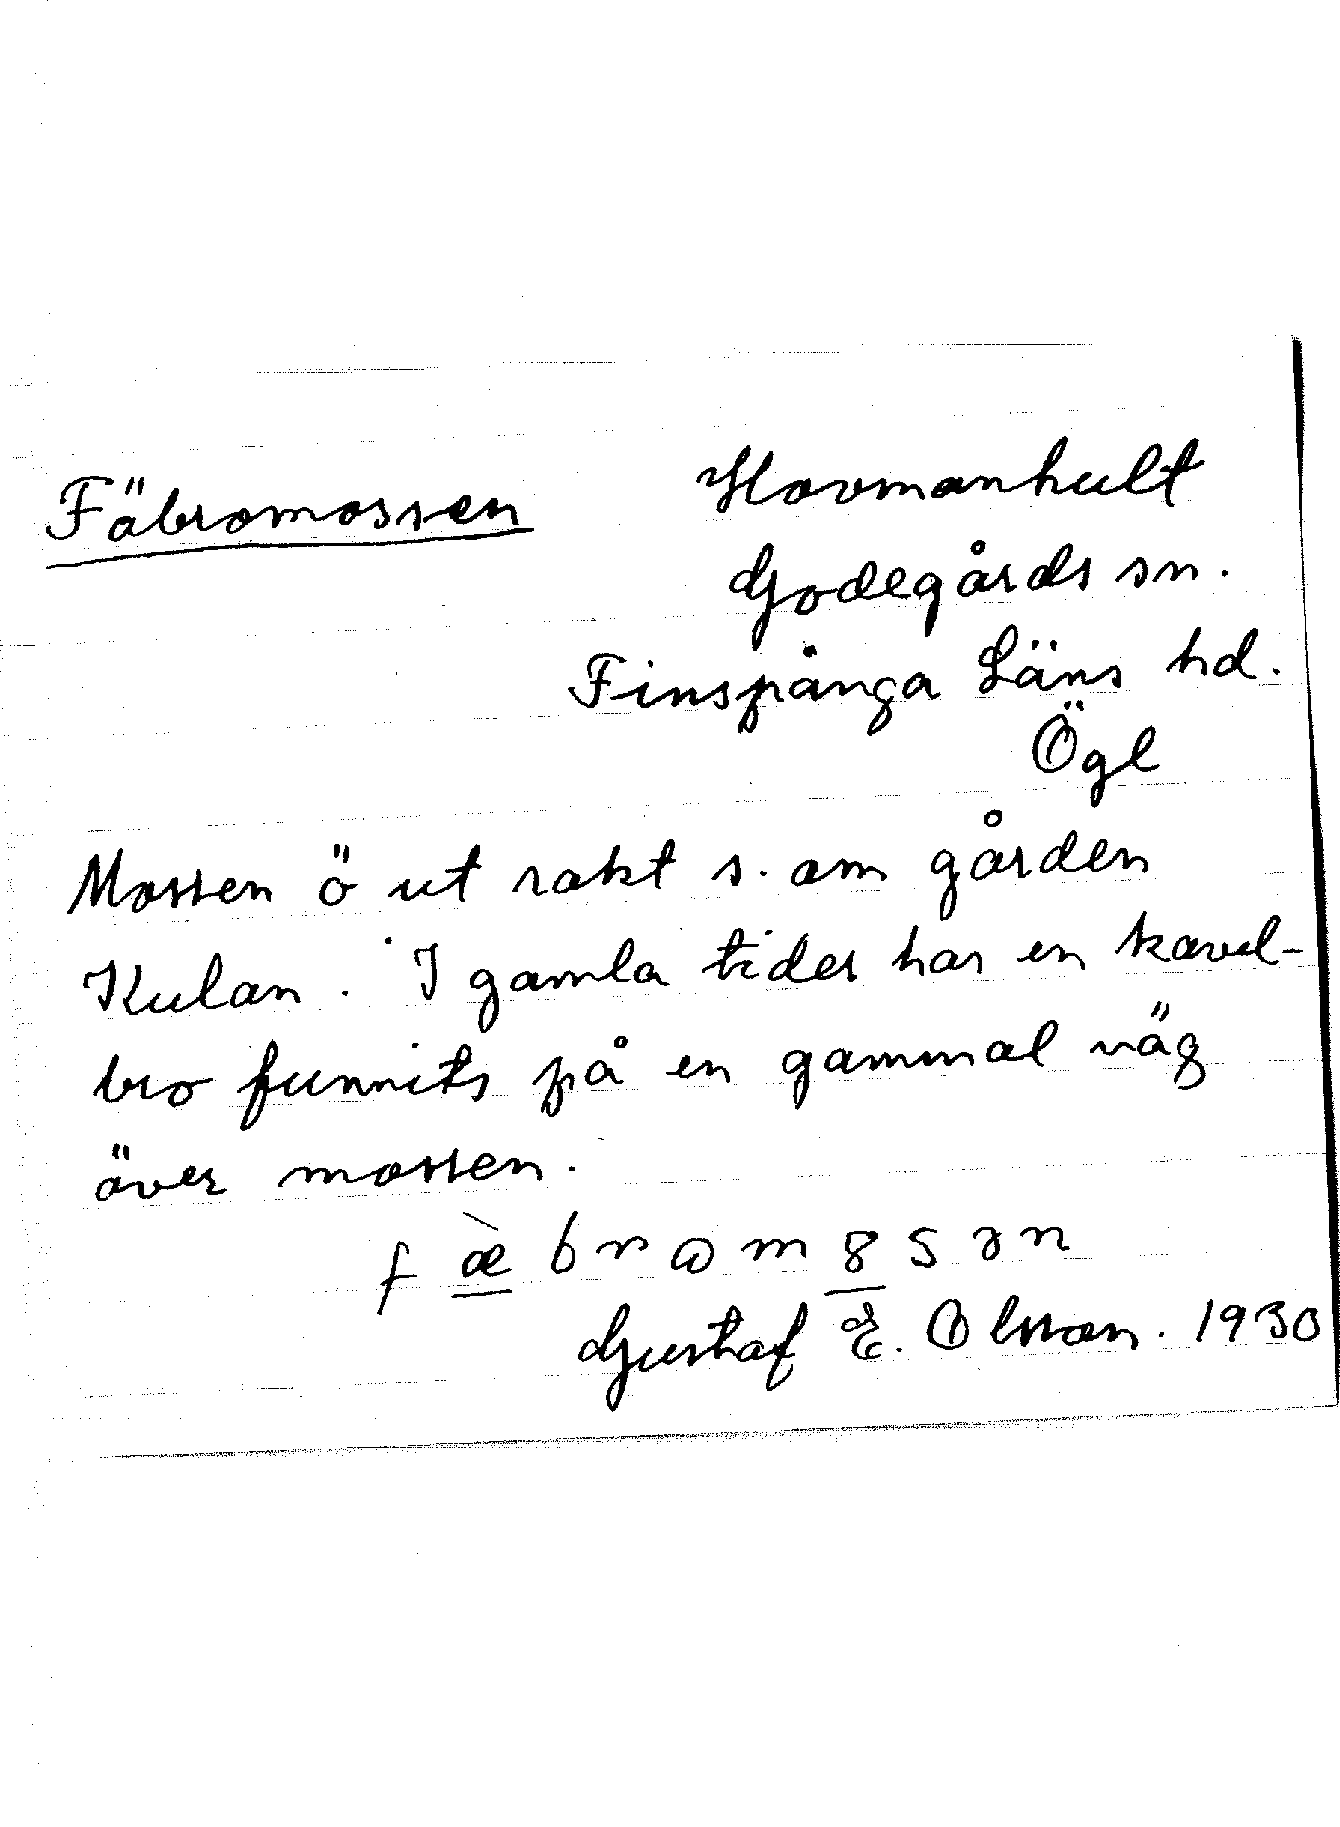 Fäbromossen
Hovmanhult
Godegårds sn.
Finspånga Läns hd.
Ögl
Mossen ö ut rakt s. om gården
Kulan. I gamla tider har en kavel-
bro funnits på en gammal väg
över mossen.
f æ̀ b r ω m 8 s ə n
Gustaf E. Olsson. 1930